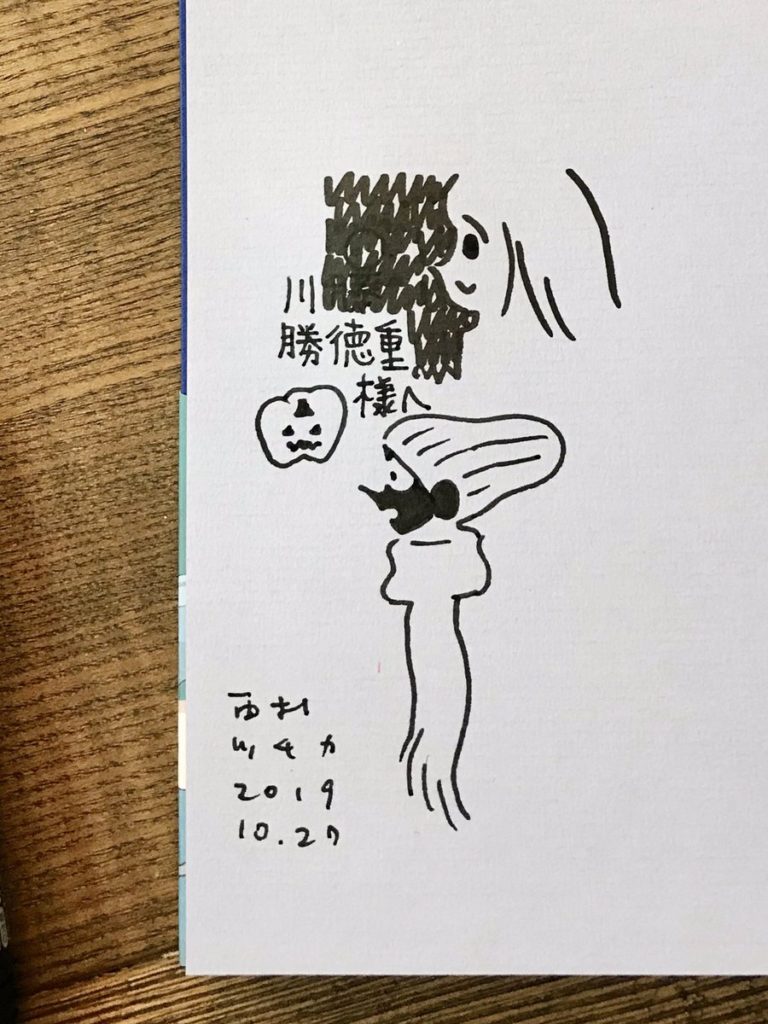 川
勝徳重
様へ
西村
ツチカ
2019
10.27